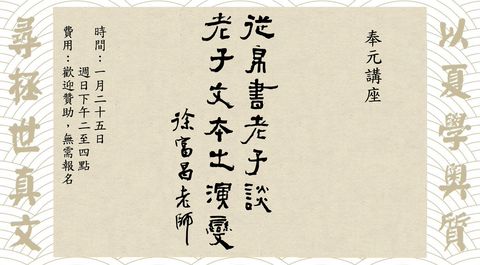 以夏學奧質
奉元講座
從帛書老子談
老子文本之演變
徐富昌老師
時間：一月二十五日
週日下午二至四點
費用：歡迎贊助，無需報名
尋拯世真文